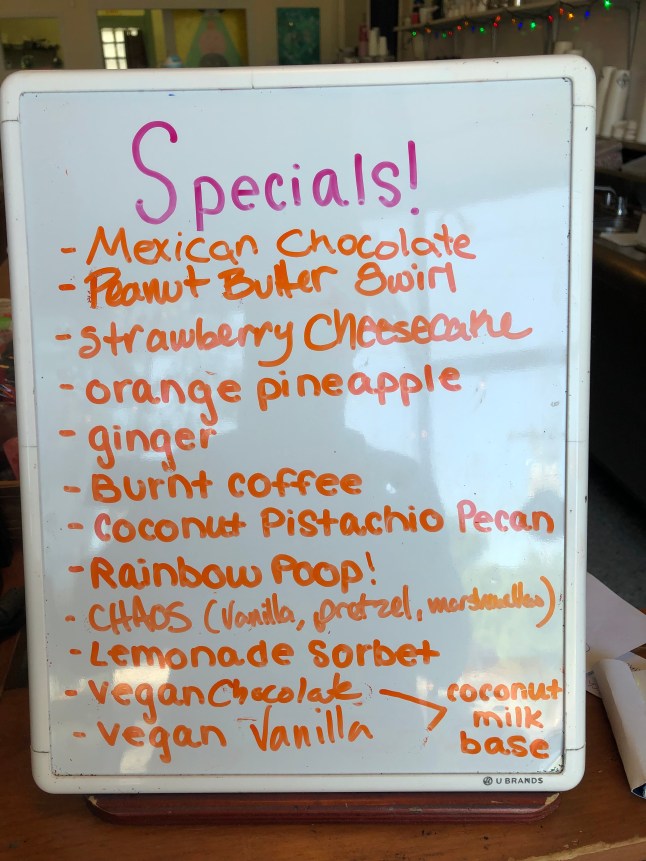 Specials!
- Mexican Chocolate
- Peanut Butter Swirl
- strawberry Cheesecake
- orange pineapple
- ginger
- Burnt coffee
- coconut Pistachio Pecan
- Rainbow Poop!
- CHAOS (Vanilla, pretzel, marshmallow)
- Lemonade Sorbet
- vegan Chocolate
- vegan Vanilla
coconut
milk
base
U BRANDS